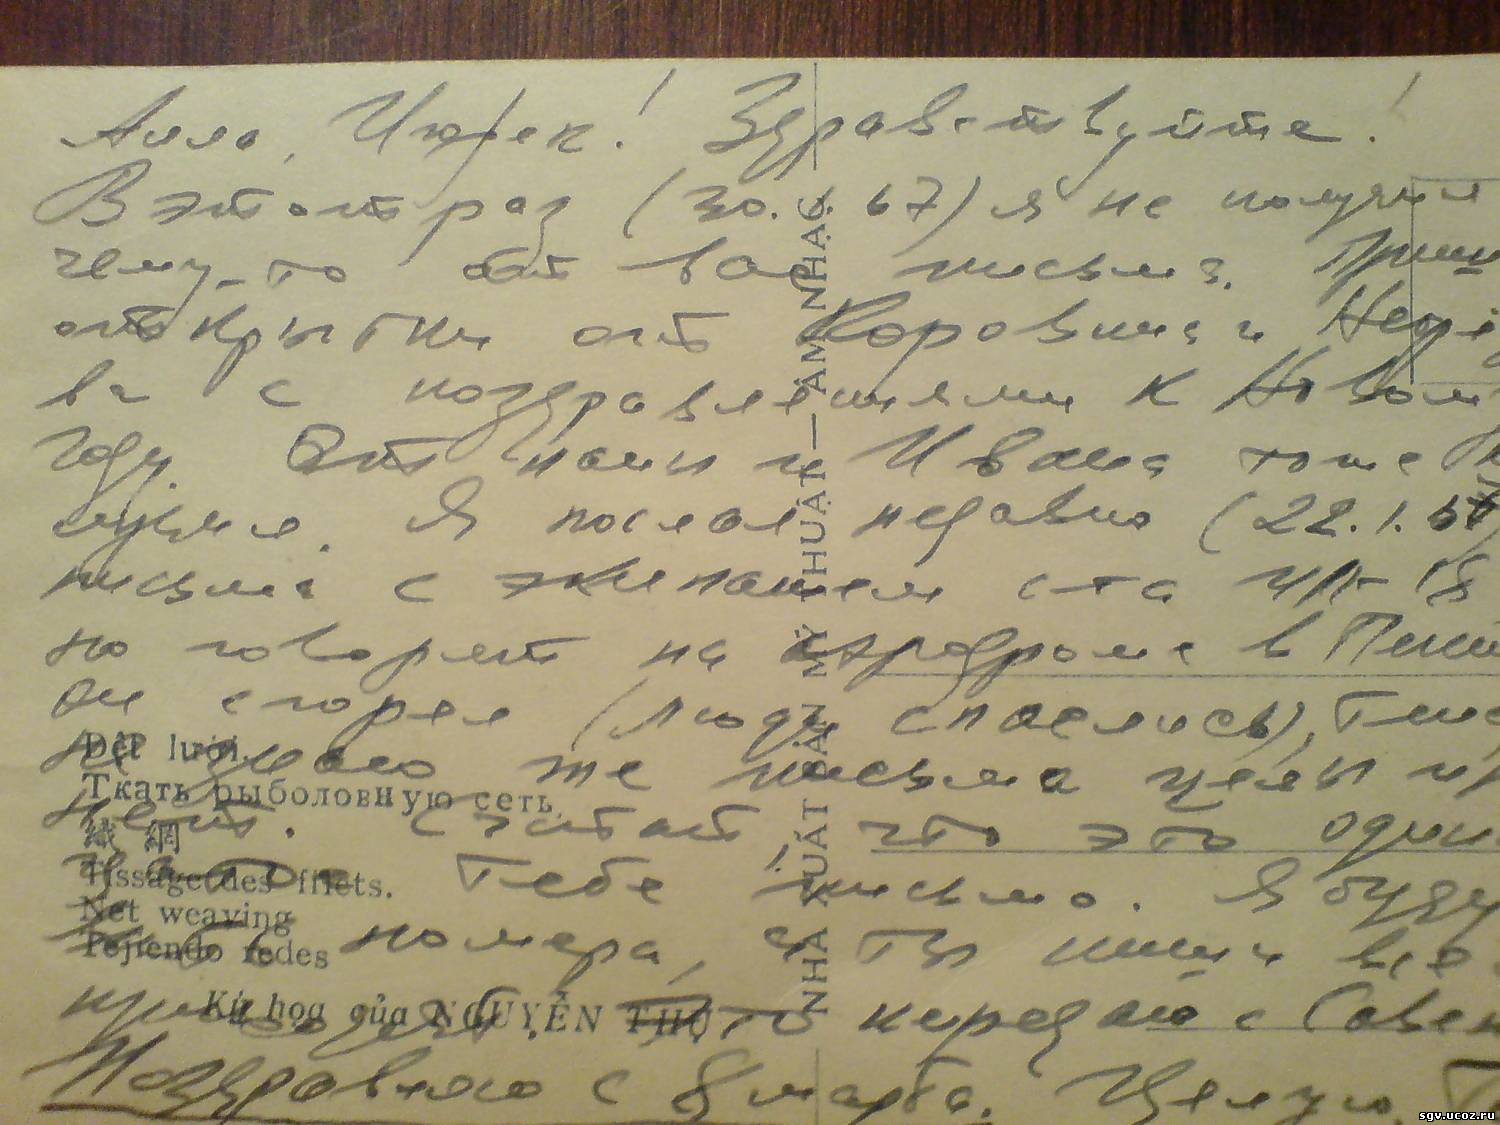 Алла, Игорек! Здравствуйте!
В этот раз (30. 67) я не получил
чему-то от вас письма. Приш
открытки от Коровина и
ва с поздравлениями к Новому
году. От мамы и Ивана тоже
Я послал недавно (22.1.67)
письма с экипажем ста ИЛ-18
но говорят на аэродроме в Пекин
он сгорел (люди спаслись),
не знаю же письма целы
нет. Считай, что это один
Тебе письмо. Я буду
номера, а ты пиши все
передаю с
Поздравляю с 8 марта. Целую.
Dệt lưới.
Ткать рыболовную сеть.
織 網
Tissage des filets.
Net weaving
Tejiendo redes
Ký họa của NGUYỄN THỌ
NHÀ XUẤT BẢN MỸ THUẬT — ÂM NHẠC
sgv.ucoz.ru